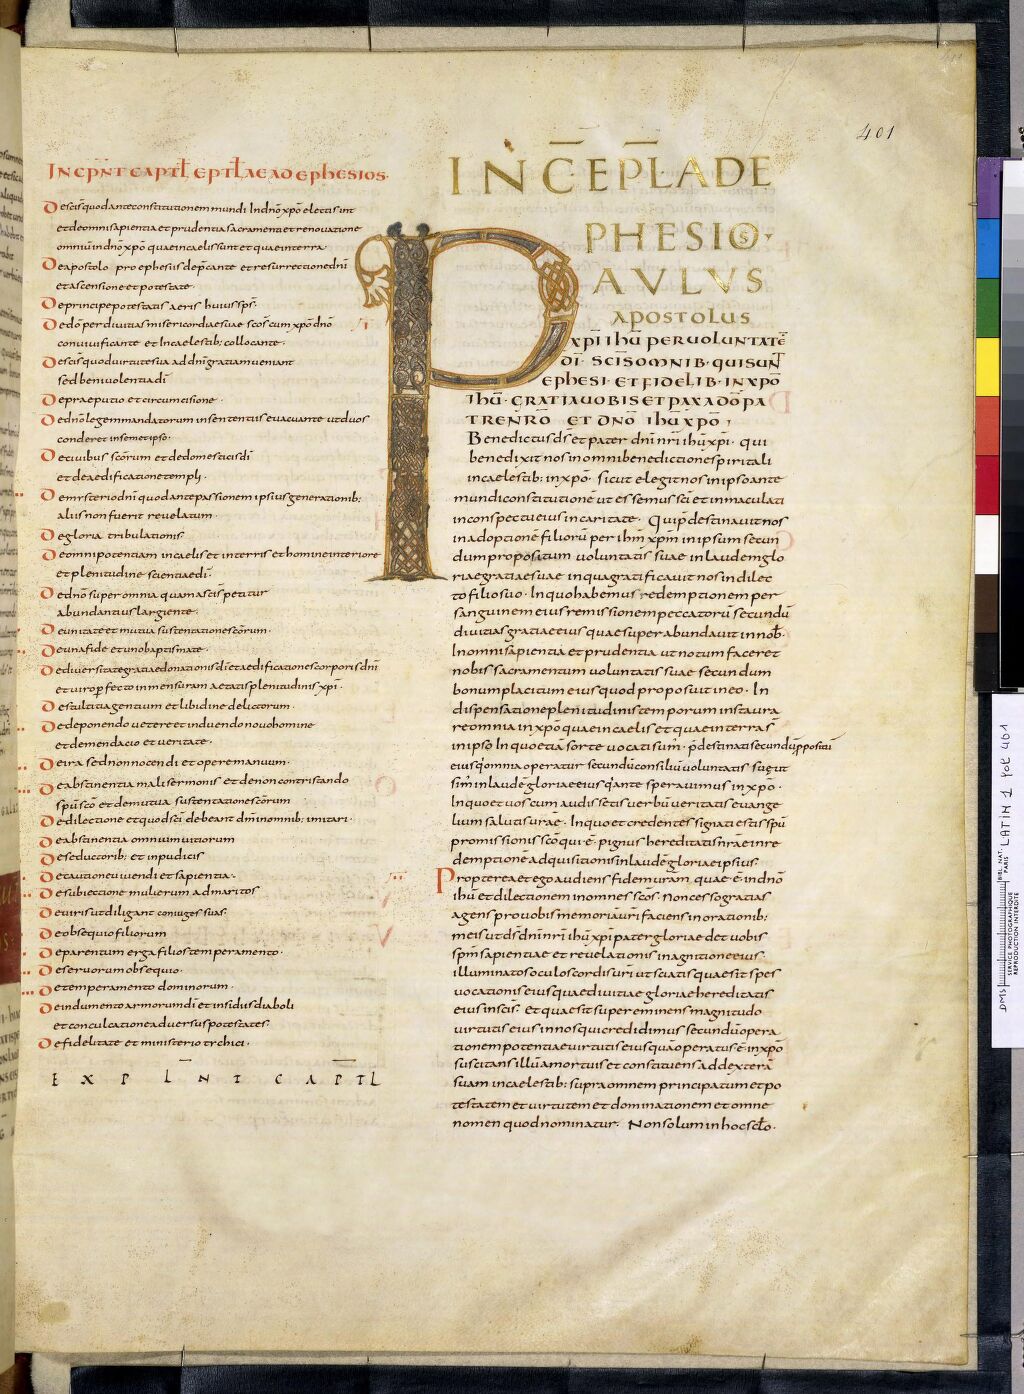 401
INCPNT CAPTL EPTLAE AD ephesios.
De scis quod ante constitutionem mundi In dno xpo electi sint
et de omni sapientia et prudentia sacramenti et renovatione
omniu in dno xpo quae in caelis sunt et quae in terra
De apostolo pro ephesiis depcante et resurrectione dni
et ascensione et potestate.
De principe potestatis aeris huius sps.
De do per divitias misericordiae suae scos cum xpo dno
convivificante et In caelestib; collocante.
De scis quod virtute sua ad dni gratiam veniant
sed benivolentia di
De praeputio et circumcisione.
De dno legem mandatorum in sententiis evacuante ut duos
conderet in semetipso.
De civibus scorum et de domesticis di
et de aedificatione templi.
De mysterio dni quod ante passionem ipsius generationib;
aliis non fuerit revelatum.
De gloria tribulationis.
De omnipotentiam in caelis et in terris et homine interiore
et plenitudine scientiae di.
De dno super omnia quam a scis petitur
abundantius largiente.
De unitate et mutua sustentatione scorum.
De una fide et uno baptismate.
De diversitate gratiae donationis di et aedificatione corporis dni
et viro pfecto in mensuram aetatis plenitudinis xpi.
De stultitia gentium et libidine delictorum.
De deponendo vetere et induendo novo homine
et de mendacio et veritate.
De ira sed non nocendi et opere manuum.
De abstinentia mali sermonis et de non contristando
spu sco et de mutua sustentatione scorum
De dilectione et quod sci debeant dm in omnib; imitari.
De abstinentia omnium vitiorum
De seductorib; et inpudicis
De cautione vivendi et sapientia.
De subiectione mulierum ad maritos
De viris ut diligant coniuges suas.
De obsequio filiorum
De parentum erga filios temperamento.
De servorum obsequio.
De temperamento dominorum.
De indumento armorum di et insidiis diaboli
et conculcatione adversus potestates.
De fidelitate et ministerio tychici.
EXPLNT CAPTL
INC EPLA DE
PHESIOS
PAVLVS
APOSTOLUS
XPI IHU PER VOLUNTATE
DI. SCIS OMNIB. QUI SUNT
EPHESI. ET FIDELIB. IN XPO
IHU. GRATIA VOBIS ET PAX A DO PA
TRE NRO ET DNO IHU XPO;
Benedictus ds et pater dni nri ihu xpi. qui
benedixit nos in omni benedictione spiritali
in caelestib; in xpo. sicut elegit nos in ipso ante
mundi constitutione ut essemus sci et inmaculati
in conspectu eius in caritate. Qui pdestinavit nos
in adoptione filioru per ihm xpm in ipsum secun
dum propositum voluntatis suae in laudem glo
riae gratiae suae in qua gratificavit nos in dilec
to filio suo. In quo habemus redemptionem per
sanguinem eius remissionem peccatoru secundu
divitias gratiae eius quae superabundavit in nob.
In omni sapientia et prudentia ut notum faceret
nobis sacramentum voluntatis suae secundum
bonum placitum eius quod proposuit in eo. In
dispensatione plenitudinis temporum instaura
re omnia in xpo quae in caelis et quae in terra s
in ipso In quo etia sorte vocati sum. pdestinati secundu ppositu
eius q omnia operatur secundu consiliu voluntatis suae ut
sim in laude gloriae eius q ante speravimus in xpo.
In quo et vos cum audissetis verbu veritatis evange
lium salutis urae. In quo et credentes signati estis spu
promissionis sco qui e pignus hereditatis nrae in re
demptione adquisitionis in laude gloriae ipsius.
Propterea et ego audiens fidem uram. quae e in dno
ihu et dilectionem in omnes scos. Non cesso gratias
agens pro vobis memoria uri faciens in orationib;
meis ut ds dni nri ihu xpi pater gloriae det vobis
spm sapientiae et revelationis in agnitione eius.
illuminatos oculos cordis uri ut sciatis quae sit spes
vocationis eius quae divitiae gloriae hereditatis
eius in scis. et quae sit supereminens magnitudo
virtutis eius in nos qui credidimus secundu opera
tionem potentiae virtutis eius qua operatus e in xpo
suscitans illu a mortuis et constituens ad dextera
suam in caelestib; supra omnem principatum et po
testatem et virtutem et dominationem et omne
nomen quod nominatur. Non solum in hoc sclo.
BIBL. NAT. PARIS LATIN 1 fol 401
SERVICE PHOTOGRAPHIQUE
REPRODUCTION INTERDITE